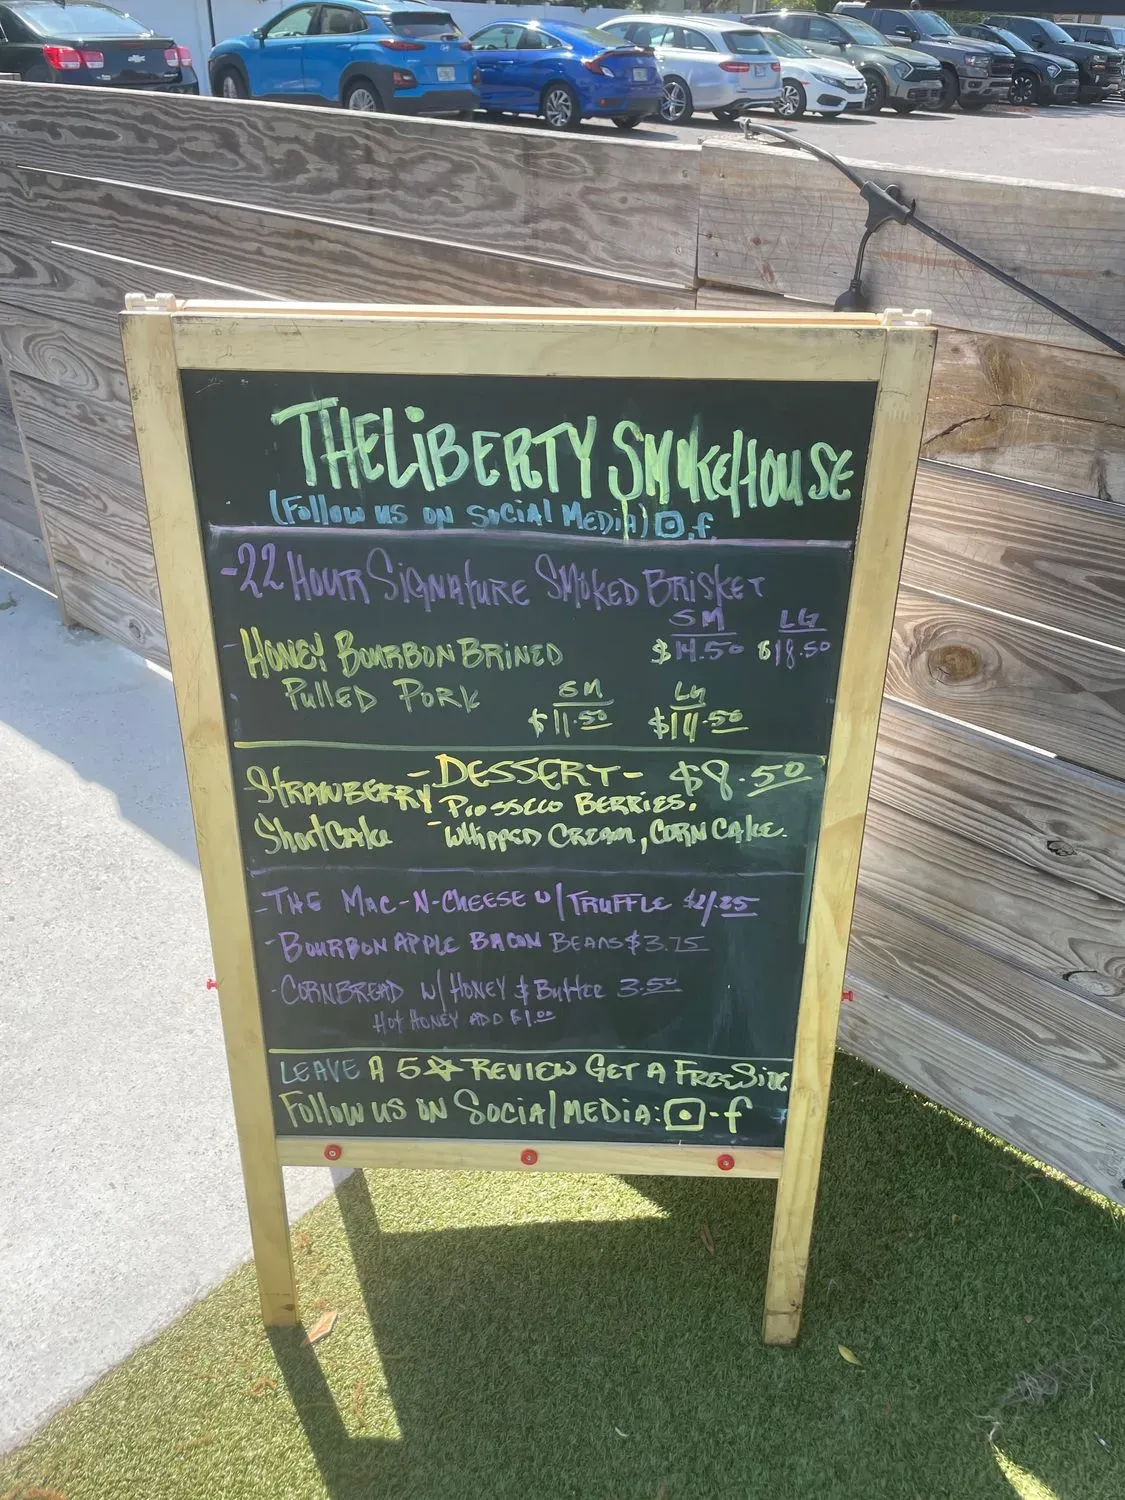 THE LiBERTY SMOKEHOUSE
(Follow us on Social Media) f
-22 Hour Signature Smoked Brisket
SM LG
$14.50 $18.50
- Honey Bourbon Brined
Pulled Pork
SM LG
$11.50 $14.50
-Dessert- $8.50
Strawberry
Shortcake
Prosseco Berries.
-Whipped Cream, Corn Cake.
-The Mac-N-Cheese w/Truffle
-Bourbon Apple Bacon Beans $3.75
-Cornbread w/Honey & Butter 3.50
Hot Honey add $1.00
Leave a 5☆ Review Get a Free Side
Follow us on Social media: f